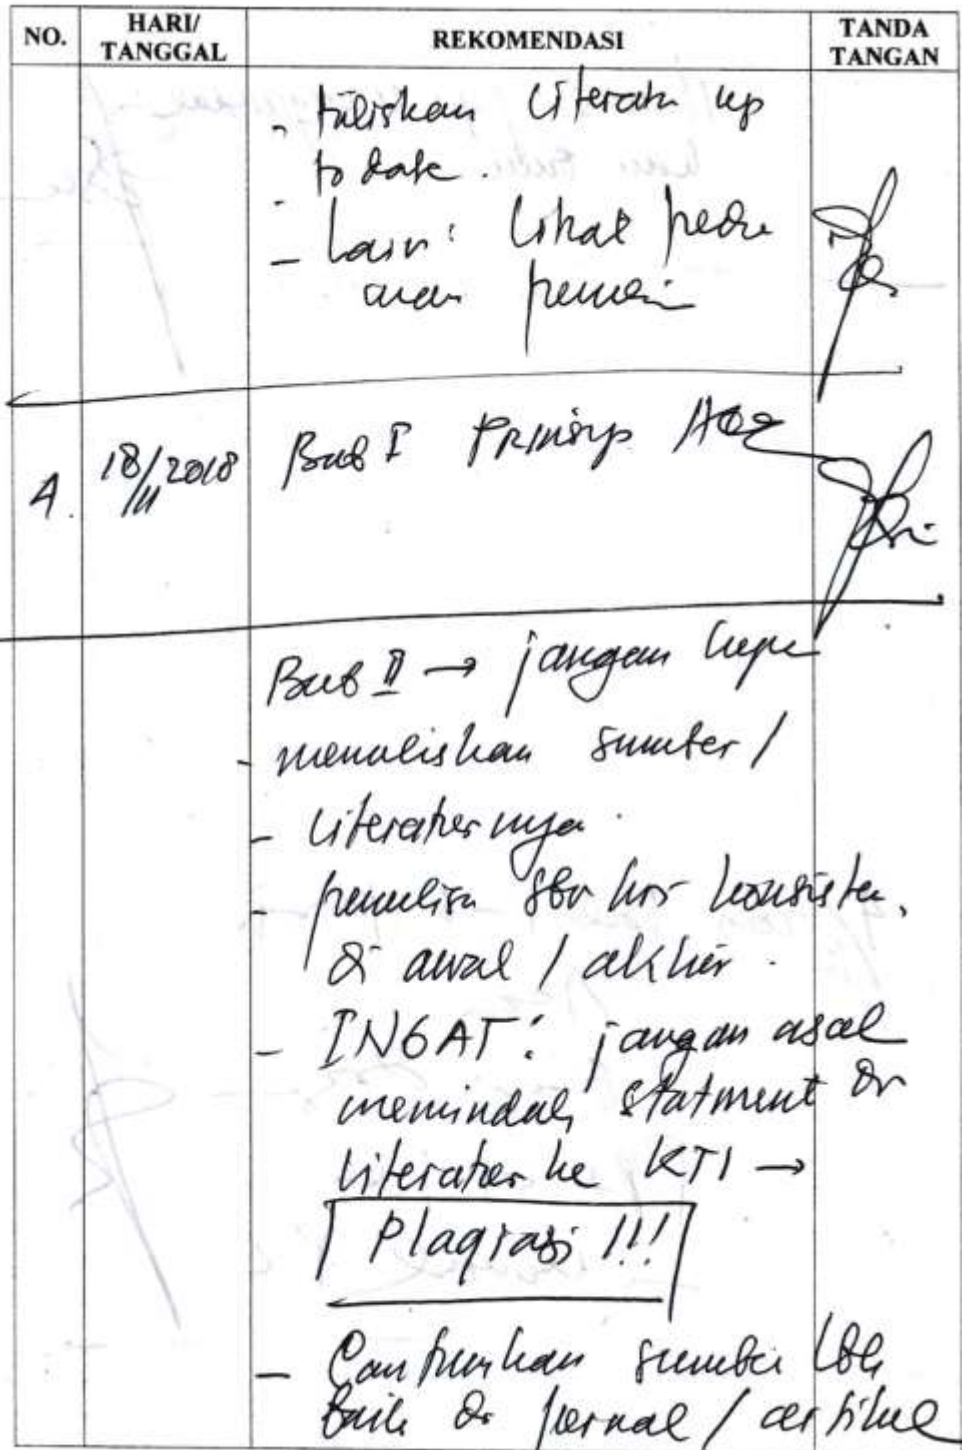 NO. HARI/ TANGGAL REKOMENDASI TANDA TANGAN
- tuliskan literatur up
to date.
- Lain: lihat pedo
man
4. 18/11 2018 Bab I Prinsip Acc
Bab II → jangan lupa
- menuliskan sumber /
- literaturnya.
- penulisan sbr hrs konsisten,
di awal / akhir.
- INGAT: jangan asal
memindah statment dr
literatur ke KTI →
Plagiasi !!!
- Cantumkan sumber lbh
baik dr jurnal / artikel